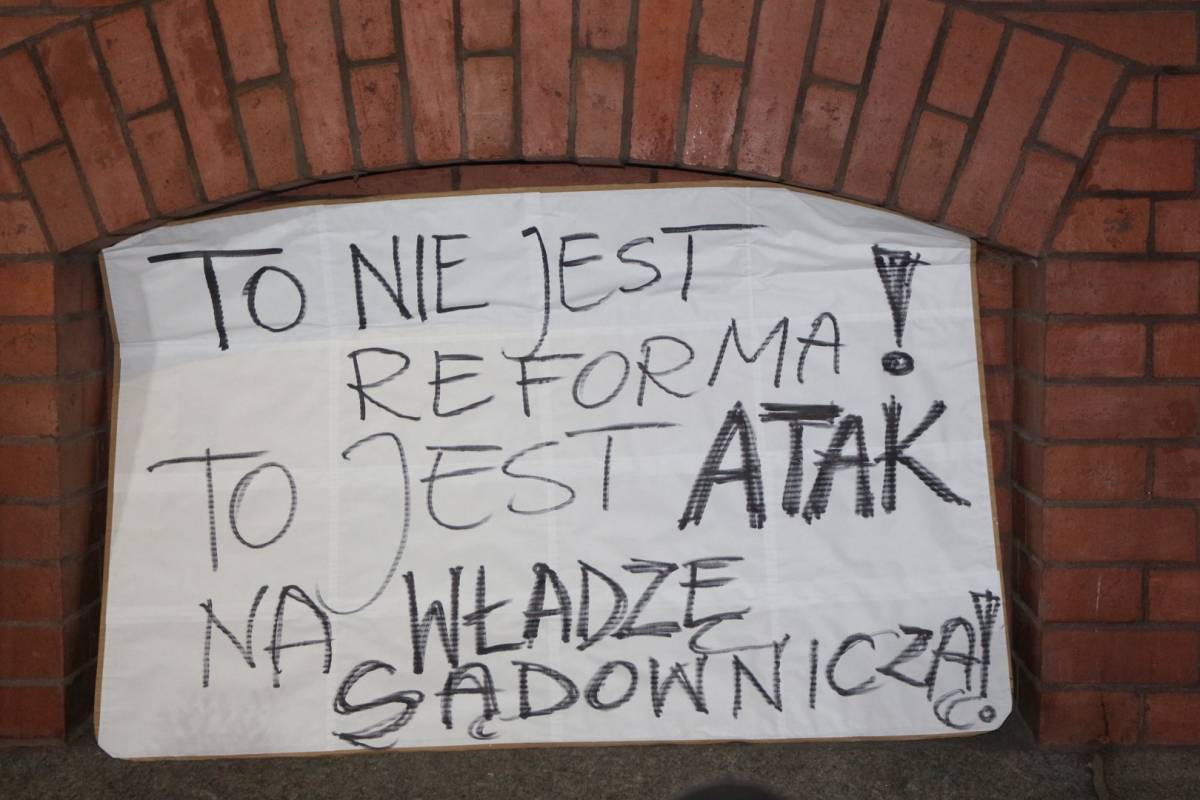 TO NIE JEST
REFORMA!
TO JEST ATAK
NA WŁADZĘ
SĄDOWNICZĄ!